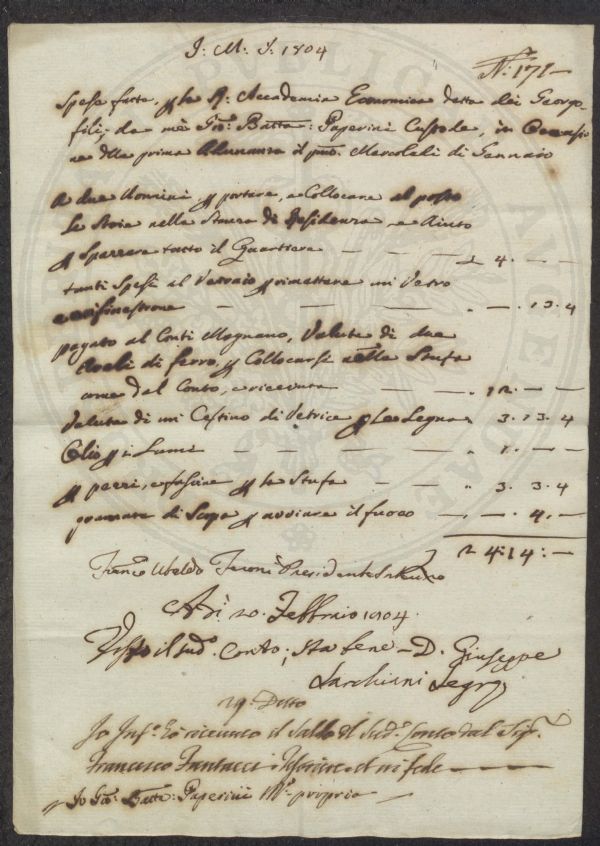 J: M: J: 1804
N.° 171 —
Spese fatte, p la R: Accademia Economica detta dei Georgo-
fili, da me Gio: Batta: Paperini Custode, in Occasio
ne della prima Adunanza il pmo. Mercoledi di Gennaio
A due Uomini p portare, e Collocare al posto
Le Stoie nella Stanza di Residenza, e Aiuto
p Spazzare tutto il Quartiere — — — 4. — —
tanti Spesi al Vetraio p rimettere un Vetro
— — — — „ 13. 4
pagato al Conti Magnano, Valuta di due
di ferro, p Collocarsi nella Stufa
come dal Conto, e ricevuta — — „ 12. — —
Valuta di un Cestino di Vetrice p le Legna „ 3. 13. 4
Olio p i Lumi — — — — „ 1. — —
p pezzi, e fascine p la Stufa — — „ 3. 3. 4
granata di Scopa p avviare il fuoco — „ —. 4. —
24: 14: —
Franco Ubaldo Feroni Presidente
Adì 20 Febbraio 1804.
Visto il sudo. Conto; sta bene — D. Giuseppe
Sarchiani Segro
29: Detto
Io Info. hò ricevuto il Saldo del Sudo. Conto dal Sigr.
Francesco Fantacci Tesoriere et in fede —
Io Gio: Batta: Paperini Mo. proprio